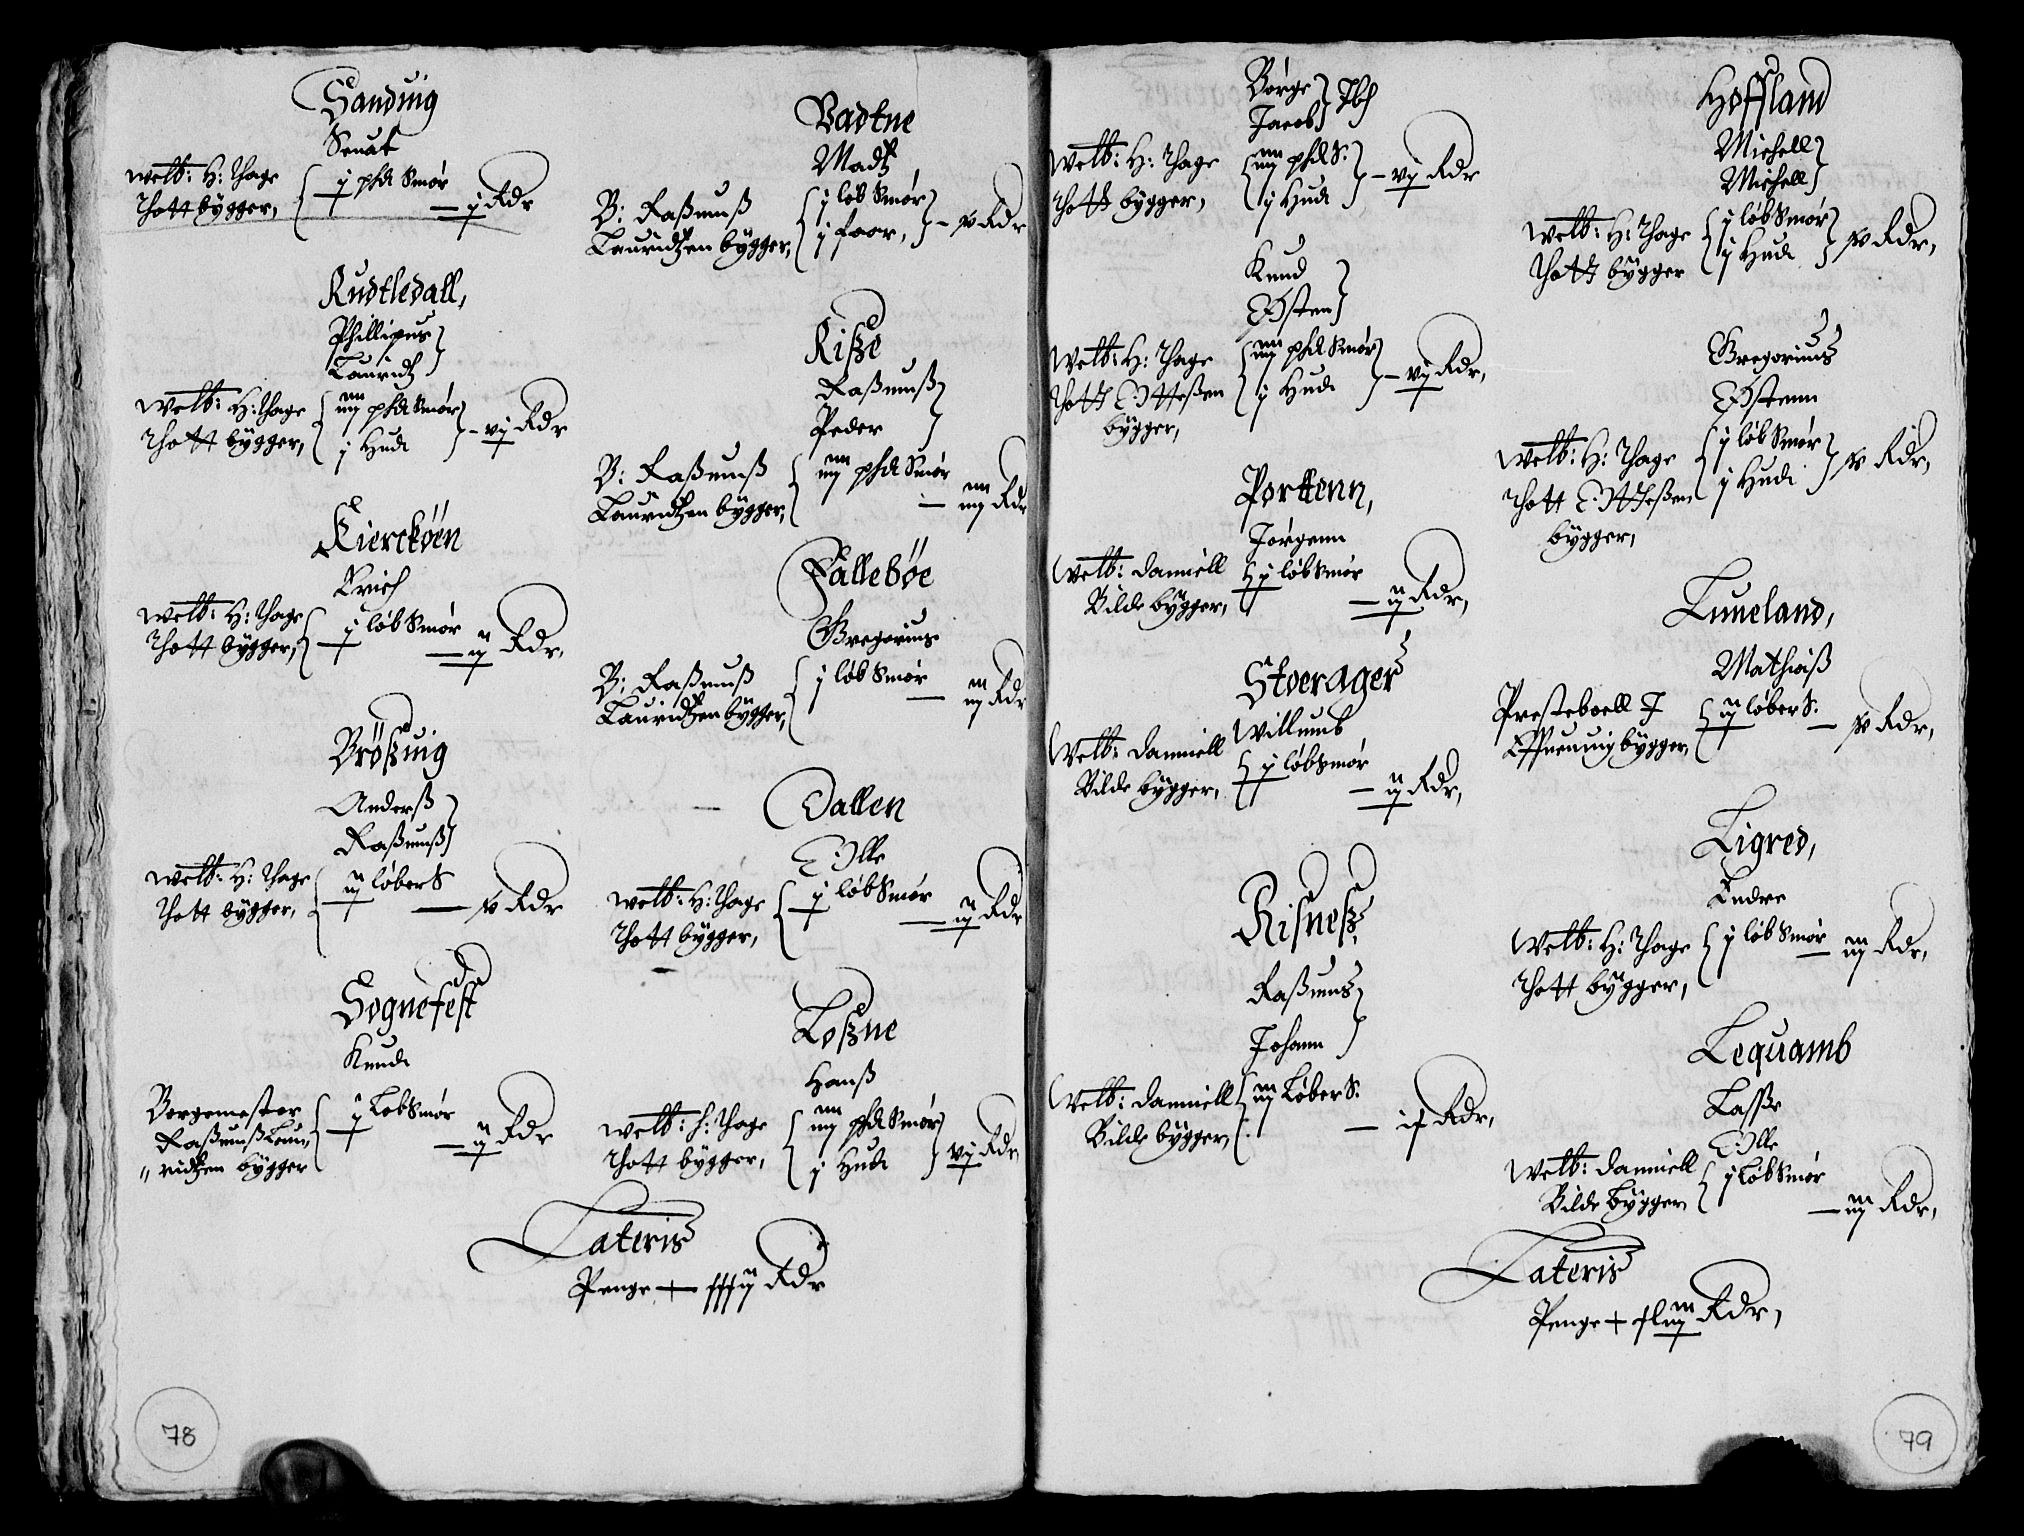 Sanduig
Senat
Welb: H: Thage
Thott bygger,
j phd Smør
— j Rdr
Rudtledall,
Phillipus
Lauridtz
Welb: H: Thage
Thott bygger,
iiij phd Smør
j Hudt
- vj Rdr
Kierckøen
Erich
Welb: H: Thage
Thott bygger,
j løb Smør
— iij Rdr.
Brößuig
Anderß
Raßmuß
Welb: H: Thage
Thott bygger,
iij løber S
— x Rdr
Sognefest
Knudt
Borgemester
Raßmuß Lau„
„ridtzen bygger
j Løb Smør
— iij Rdr
Vadtne
Madtz
B: Raßmuß
Lauridtzen bygger,
j løb Smør
j faar,
- x Rdr
Riße
Raßmuß
Peder
B: Raßmuß
Lauridtzen bygger,
iiij phd Smør
— iiij Rdr
Fallebøe
Gregorius
B: Raßmuß
Lauridtzen bygger,
j løb Smør
— iiij Rdr
Dallen
Olle
Welb: H: Thage
Thott bygger,
j løb Smør
— iij Rdr
Loßne
Hanß
Welb: H: Thage
Thott bygger,
iiij phd Smør
j Hudt
vj Rdr
Lateris
Penge + Rdr
78
Børge
Jacob
Welb: H: Thage
Thott bygger,
iiij phd S:
j Hudt
- vj Rdr
Knud
Østen
Welb: H: Thage
Thott Otteßen
bygger,
iiij phd Smør
j Hudt
- vj Rdr,
Porttenn,
Jørgenn
Welb: Danniell
Bilde bygger,
j løb Smør
— iij Rdr,
Stoerager
Willumb
Welb: Danniell
Bilde bygger,
j løb Smør
— iij Rdr,
Risneß,
Raßmus
Johann
Welb: Danniell
Bilde bygger,
iiij Løber S:
— Rdr,
Hoffland
Michell
Michell
Welb: H: Thage
Thott bygger
j løb Smør
j Hudt
x Rdr,
Gregorius
Østenn
Welb: H: Thage
Thott Otteßen
bygger,
j løb Smør
j Hudt
x Rdr,
Luneland,
Mathiaß
Presteboell J
Effueruig bygger,
iij løber S:
— x Rdr,
Ligred,
Endre
Welb: H: Thage
Thott bygger,
j løb Smør
— iiij Rdr,
Lequamb
Lasse
Olle
Welb: Danniell
Bilde bygger
j Løb Smør
— iiij Rdr,
Lateris
Penge + Rdr,
79